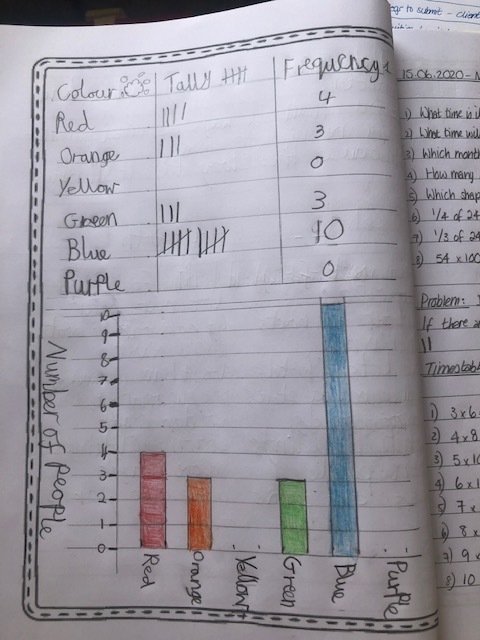 Colour Tally Frequency
Red 4
Orange 3
Yellow 0
Green 3
Blue 10
Purple 0
10
9
8
7
6
5
4
3
2
1
0
Number of people
Red Orange Yellow Green Blue Purple
15.06.2020 -
1) What time
2) What time will
3) Which month
4) How many
5) Which
6) 1/4 of 24
7) 1/3 of 24
8) 54 x 100
Problem:
If there
11
1) 3 x 6
2) 4 x 8
3) 5 x
4) 6 x
5) 7 x
6) 8 x
7) 9 x
8) 10